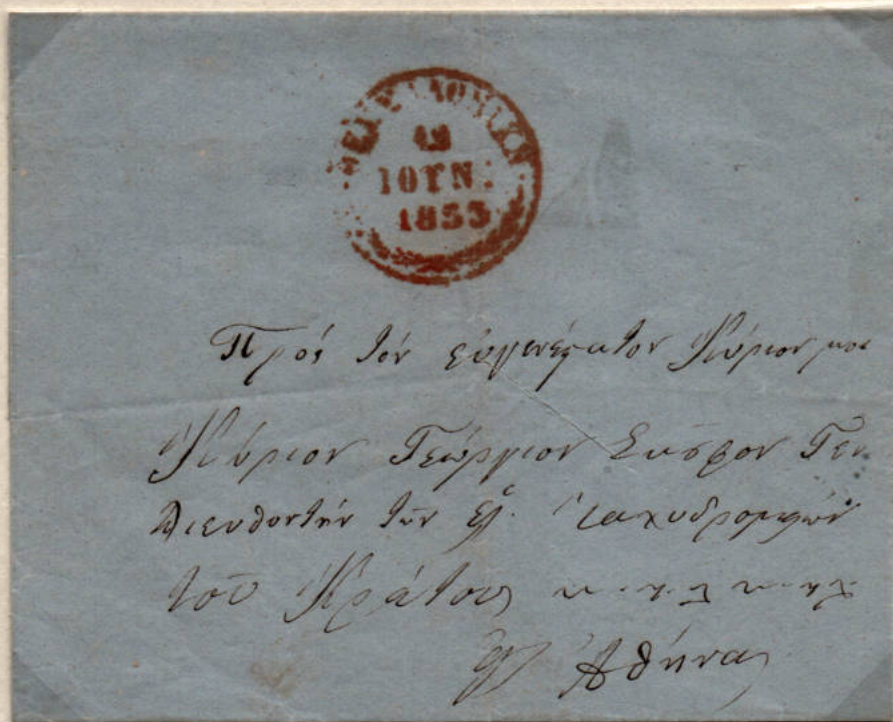 ΘΕΣΣΑΛΟΝΙΚΗ
ΙΟΥΝ:
1853
Πρός τόν εὐγενέστατον Κύριον μου
Κύριον Γεώργιον Σκοῦφον Γεν
Διευθυντήν τῶν Ἑλ. ταχυδρομείων
τοῦ Κράτους
Ἀθήνας